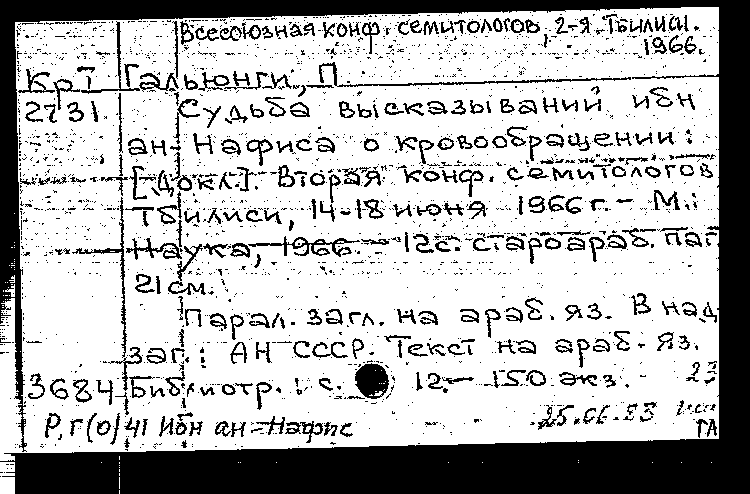 Всесоюзная конф. семитологов, 2-я. Тбилиси.
1966.
КрТ Гальюнги, П.
2731 Судьба высказываний ибн
ан-Нафиса о кровообращении:
[Докл.]. Вторая конф. семитологов
Тбилиси, 14-18 июня 1966 г. - М.:
Наука, 1966. - 12 с. староараб. паг.
21 см.
Парал. загл. на араб. яз. В над
заг.: АН СССР. Текст на араб. яз.
3684 Библиогр.: с. 12. - 150 экз. 23
25.06.83
Р, г (о) 41 Ибн ан-Нафис ГА